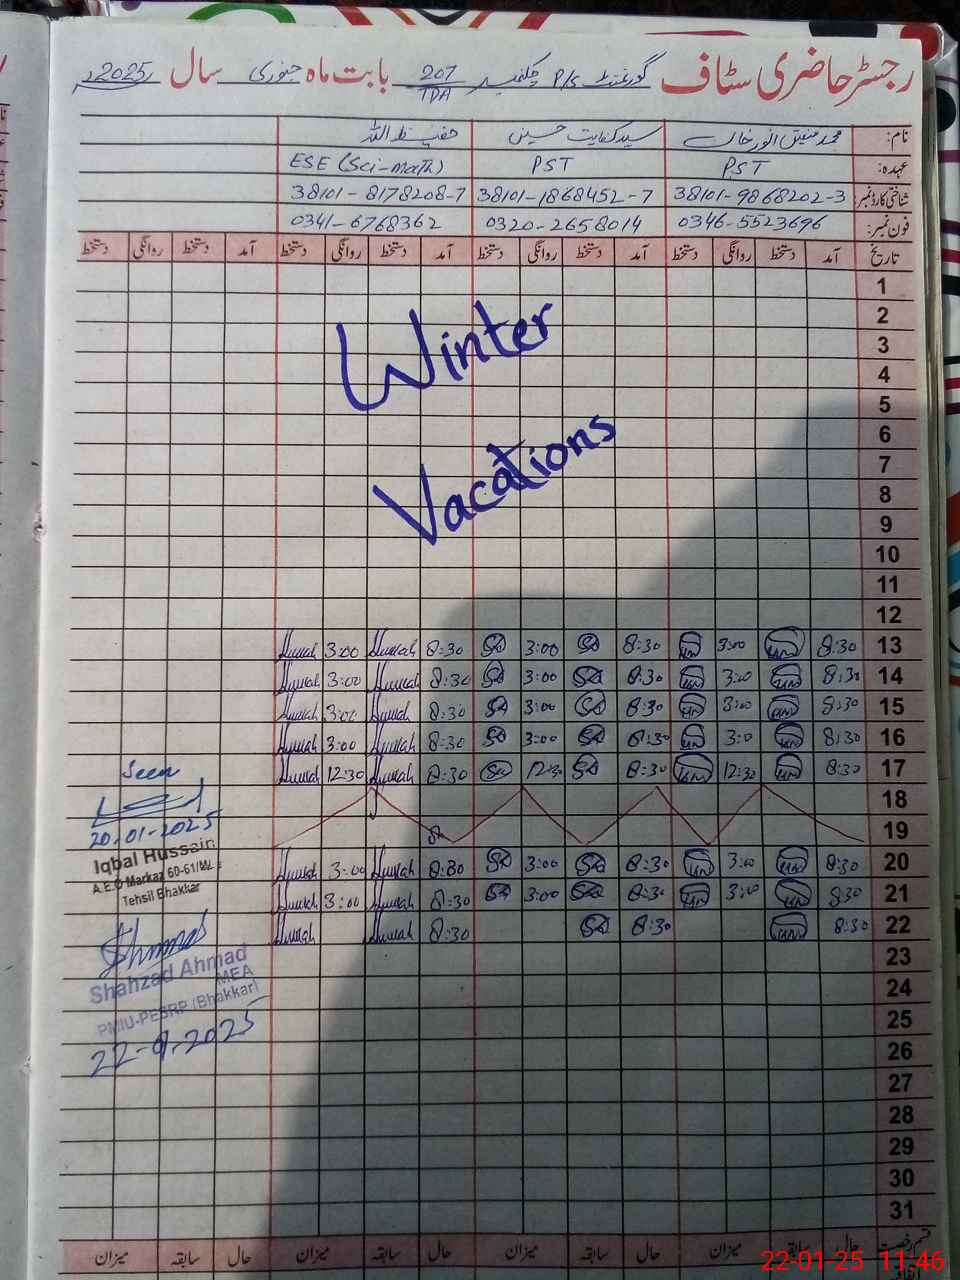 رجسٹر حاضری سٹاف گورنمنٹ P/S چکنمبر 207/TDA بابت ماہ جنوری سال 2025ء
نام: محمد عتیق انور خان سید کفایت حسین حفیظ اللہ
عہدہ: PST PST ESE (Sci-math)
شناختی کارڈ نمبر: 38101-9868202-3 38101-1868452-7 38101-8178208-7
فون نمبر: 0346-5523696 0320-2658014 0341-6768362
تاریخ آمد دستخط روانگی دستخط آمد دستخط روانگی دستخط آمد دستخط روانگی دستخط آمد دستخط روانگی دستخط
1
2
3
Winter
4
5
6
7
Vacations
8
9
10
11
12
3:00 8:30 3:00 8:30 3:00 8:30 13
3:00 8:30 3:00 8:30 3:00 8:30 14
3:00 8:30 3:00 8:30 3:00 8:30 15
3:00 8:30 3:00 8:30 3:00 8:30 16
12:30 8:30 12:30 8:30 12:30 8:30 17
18
19
3:00 8:30 3:00 8:30 3:00 8:30 20
3:00 8:30 3:00 8:30 3:00 8:30 21
8:30 8:30 8:30 22
23
24
25
26
27
28
29
30
31
Seen
20-01-2025
Iqbal Hussain
A.E.O Markaz 60-61/ML
Tehsil Bhakkar
Shahzad Ahmad
MEA
PMIU-PESRP (Bhakkar)
22-01-2025
قسم رخصت حال سابقہ میزان حال سابقہ میزان حال سابقہ میزان حال سابقہ میزان
22-01-25 11:46